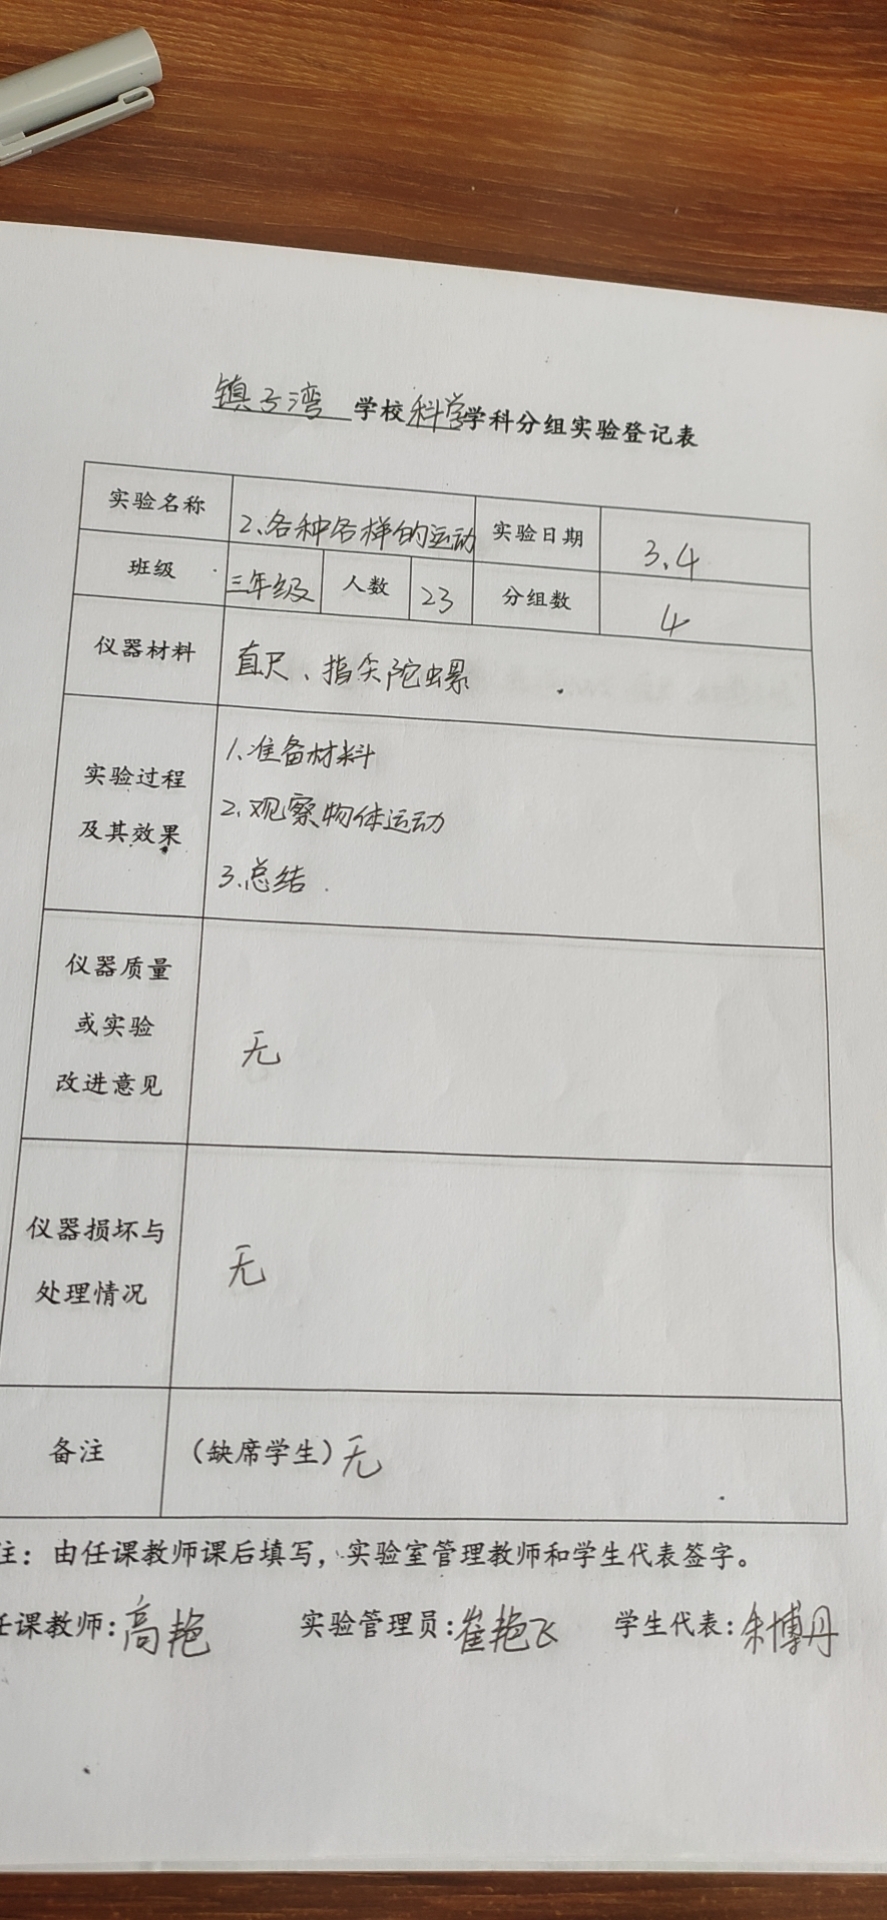 镇子湾 学校科学学科分组实验登记表
实验名称 2、各种各样的运动 实验日期 3.4
班级 三年级 人数 23 分组数 4
仪器材料 直尺、指尖陀螺
实验过程
及其效果
1.准备材料
2.观察物体运动
3.总结.
仪器质量
或实验
改进意见
无
仪器损坏与
处理情况
无
备注 (缺席学生)无
注：由任课教师课后填写，实验室管理教师和学生代表签字。
任课教师:高艳 实验管理员:崔艳飞 学生代表:朱博丹